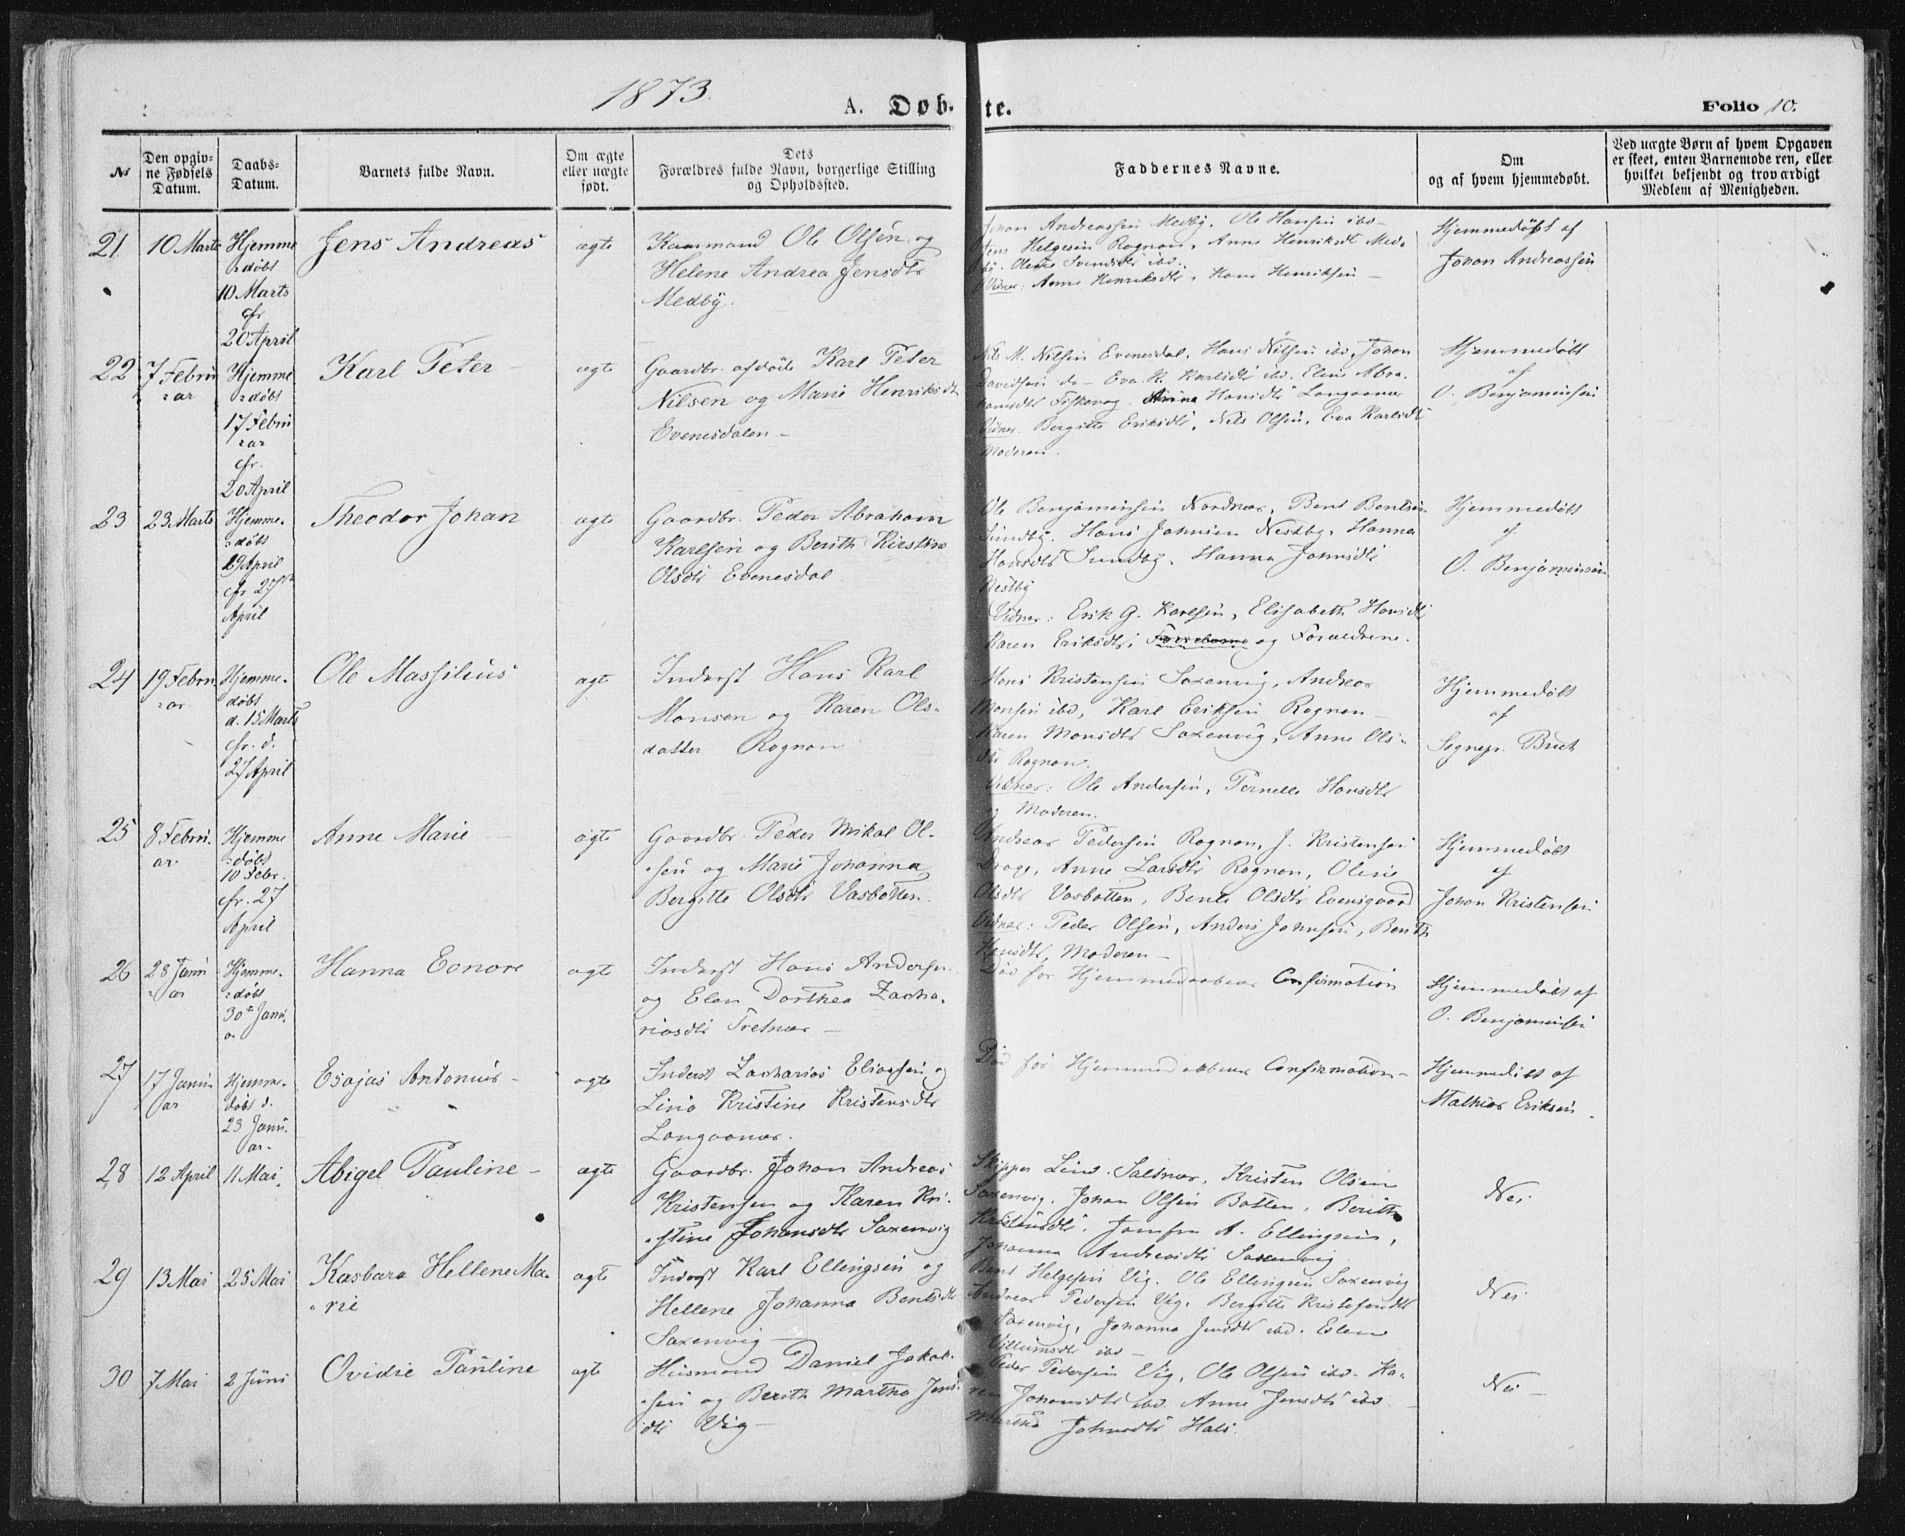 1873.
A. Døbte.
Folio 10.
№
Den opgiv-
ne Fødsels
Datum.
Daabs-
Datum.
Barnets fulde Navn.
Om ægte
eller uægte
født.
Dets
Forældres fulde Navn, borgerlige Stilling
og Opholdssted.
Faddernes Navne.
Om
og af hvem hjemmedøbt.
Ved uægte Børn af hvem Opgaven
er skeet, enten Barnemoderen, eller
hvilket bekjendt og troværdigt
Medlem af Menigheden.
21
10 Marts
Hjemme
døbt
10 Marts
cfr
20 April
Jens Andreas
ægte
Kaarmand Ole Olsen og
Helene Andrea Jensdtr
Medby.
Johan Andreassen Medby, Ole Hansen ibd
Jens Helgesen Rognan, Anne Henriksdtr Med-
by, Oline Svendsdtr ibd.
Vidner: Anne Henriksdtr, Hans Henriksen
Hjemmedøbt af
Johan Andreassen
22
7 Febru
ar
Hjemme
døbt
17 Febru
ar
cfr.
20 April
Karl Peter
ægte
Gaardbr. afdøde Karl Peter
Nilsen og Marie Henriksdtr
Evenesdalen
Nils M. Nilsen Evenesdal, Hans Nilsen ibd, Johan
Davidsen do – Eva K. Karlsdtr ibd. Eline Abra-
hamsdtr Fiskevag, Anna Hansdtr Langaanes
Vidner. Bergitte Eriksdtr, Nils Olsen, Eva Karlsdtr
Moderen.
Hjemmedøbt
af
O. Benjaminsen
23
23 Marts
Hjemme-
døbt
19 April
cfr 27de
April
Theodor Johan
ægte
Gaardbr. Peder Abraham
Karlsen og Berith Kirstine
Olsdtr Evenesdal
Ole Benjaminsen Nordnæs, Bent Bentsen
Sundby, Hans Johnsen Nestby, Hanna
Hansdtr Sundby, Hanna Johnsdtr
Nestby
Vidner: Erik G. Karlsen, Elisabeth Hansdtr
Karen Eriksdtr og Forældrene.
Hjemmedøbt
af
O. Benjaminsen
24
19 Febru
ar
Hjemme-
døbt
d. 15 Marts
cfr. d.
27 April
Ole Massilius
ægt
Inderst Hans Karl
Monsen og Karen Ols-
datter Rognan
Hans Kristensen Saxenvig, Andreas
Monsen ibd, Karl Eriksen Rognan
Karen Monsdtr Saxenvig, Anne Ols-
dtr Rognan.
Vidner: Ole Andersen, Pernelle Hansdtr
og Moderen.
Hjemmedøbt
af
Sognepr. Buch
25
8 Febru.
ar
Hjemme
døbt
10 Febr.
cfr. 27
April
Anne Marie
ægte
Gaardbr. Peder Mikal Ol-
sen og Marie Johanna
Bergitte Olsdtr Vasbotten.
Andreas Pedersen Rognan, J. Kristensen
Drage, Anne Larsdtr Rognan, Oline
Olsdtr Vasbotten, Bente Olsdtr Evensgaard
Vidner: Peder Olsen, Anders Johnsen, Berith
Hansdtr, Moderen
Hjemmedøbt
af
Johan Kristensen
26
28 Janu
ar
Hjemme-
døbt
30te Janu.
ar
Hanna Eonore
ægte
Inderst Hans Andersen
og Elen Dorthea Zacha-
riasdtr Tretnæs
Død før Hjemmedaabens Confirmation
Hjemmedøbt af
O. Benjaminsen
27
17 Janu
ar
Hjemme-
døbt d.
23 Janu.
ar.
Esajas Antonius
ægte
Inderst Zacharias Eliassen og
Lina Kristine Kristensdtr
Langaanes.
Død før Hjemmedaabens Confirmation
Hjemmedøbt af
Mathias Eriksen.
28
12 April
11 Mai
Abigel Pauline
ægte
Gaardbr. Johan Andreas
Kristensen og Karen Kri-
stine Johansdtr Saxenvig
Skipper Lind Saltnæs, Kristen Olsen
Saxenvig, Johan Olsen Botten, Berith
Kristensdtr, Jomfru A. Ellingsen,
Johanna Andreasdtr Saxenvig
Nei
29
13 Mai
25 Mai
Kasbara Hellene Ma-
rie
ægte
Inderst Karl Ellingsen og
Hellene Johanna Bentsdtr
Saxenvig
Bent Helgesen Vig. Ole Ellingsen Saxenvig
Andreas Pedersen Vig, Bergitte Kristofersdtr
Saxenvig, Johanna Jensdtr ibd. Elen
Villumsdtr ibd
Nei
30
7 Mai
2 Juni
Ovidie Pauline
ægte
Husmand Daniel Jakob-
sen og Berith Martha Jens-
dtr Vig
Peder Pedersen Vig, Ole Olsen ibd. Ka-
ren Johansdtr ibd. Anne Jensdtr ibd
Martha Johnsdtr Hals.
Nei